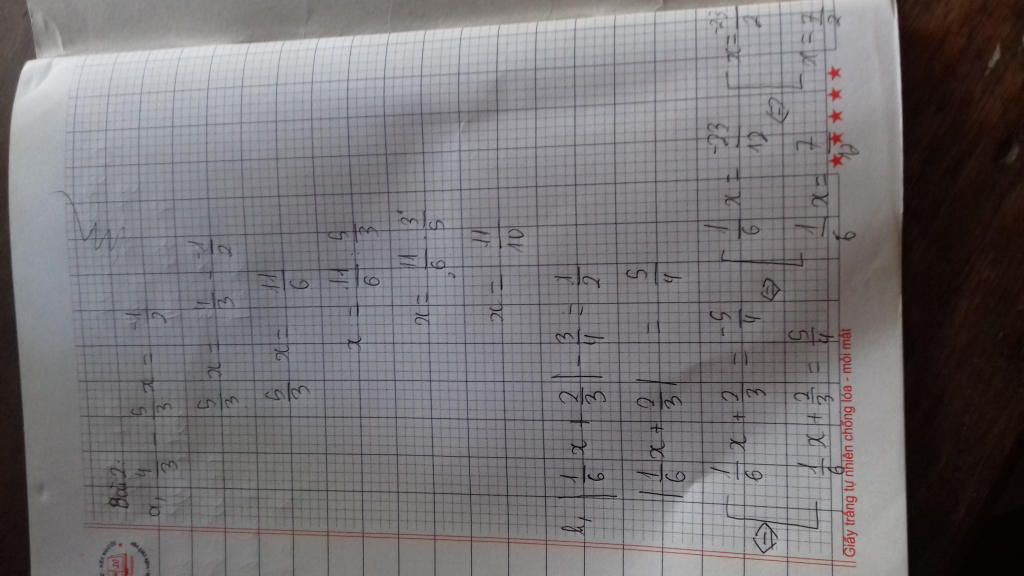 Bài 2:
a, 4/3 - 5/3 x = -1/2
5/3 x = 4/3 - -1/2
5/3 x = 11/6
x = 11/6 : 5/3
x = 11/6 . 3/5
x = 11/10
b, |1/6 x + 2/3| - 3/4 = 1/2
|1/6 x + 2/3| = 5/4
⇔ [ 1/6 x + 2/3 = -5/4 ⇔ [ 1/6 x = -23/12 ⇔ [ x = -23/2
[ 1/6 x + 2/3 = 5/4 [ 1/6 x = 7/12 [ x = 7/2
Giấy trắng tự nhiên chống lóa - mỏi mắt ★ ★ ★ ★ ★